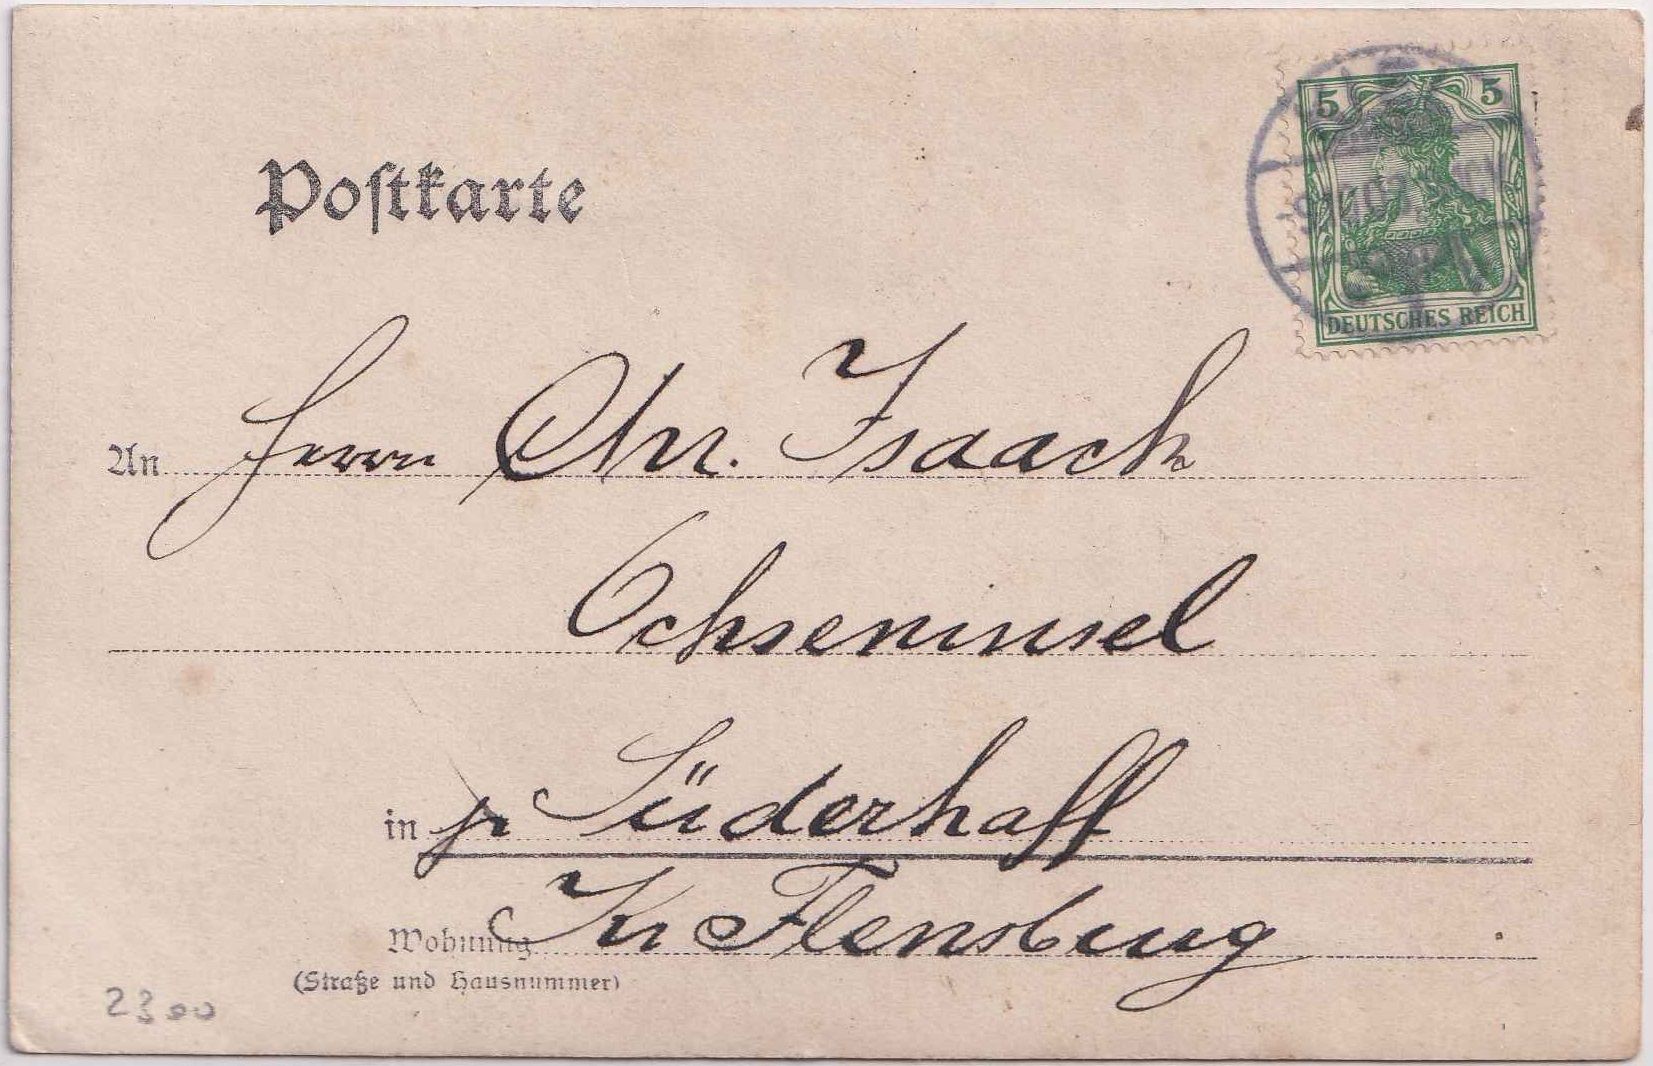 5 5
DEUTSCHES REICH
Postkarte
An Herrn Chr. Isaack
Ochseninsel
in pr Süderhaff
Wohnung Kr Flensburg
(Straße und Hausnummer)
2300